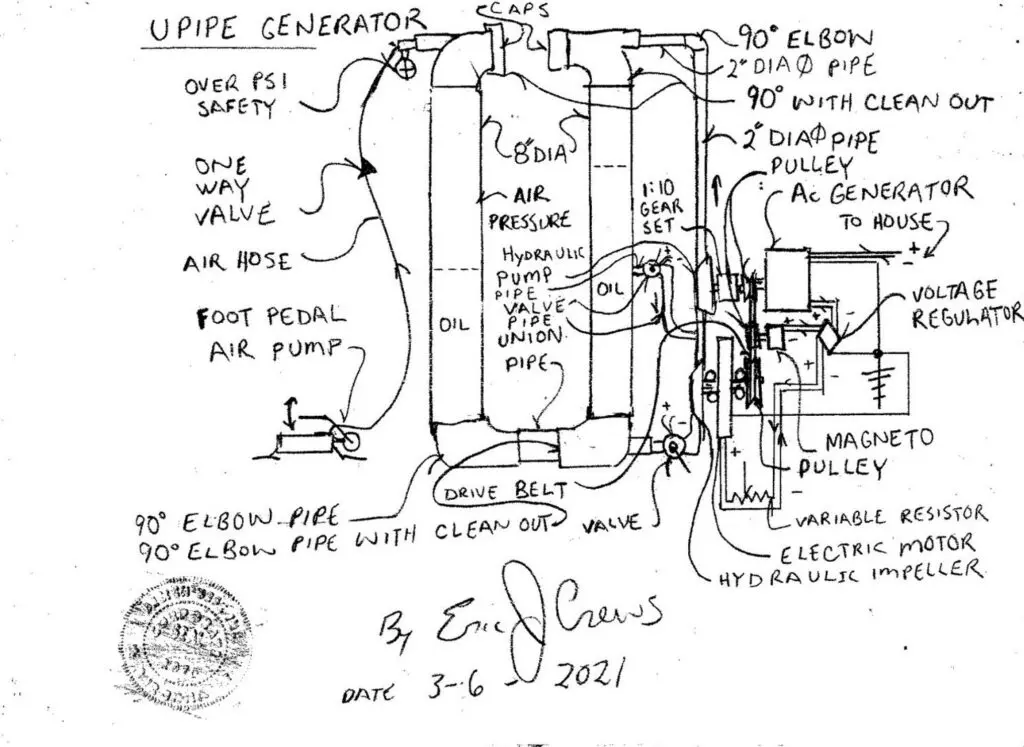 UPIPE GENERATOR
CAPS
90° ELBOW
2" DIA Ø PIPE
90° WITH CLEAN OUT
2" DIA Ø PIPE
PULLEY
AC GENERATOR
TO HOUSE
+
-
OVER PSI
SAFETY
ONE
WAY
VALVE
AIR HOSE
FOOT PEDAL
AIR PUMP
8" DIA
AIR
PRESSURE
1:10
GEAR
SET
HYDRAULIC
PUMP
PIPE
VALVE
PIPE
UNION
PIPE
OIL
OIL
VOLTAGE
REGULATOR
MAGNETO
PULLEY
DRIVE BELT
VALVE
90° ELBOW PIPE
90° ELBOW PIPE WITH CLEAN OUT
VARIABLE RESISTOR
ELECTRIC MOTOR
HYDRAULIC IMPELLER
By Eric J Crews
DATE 3-6-2021